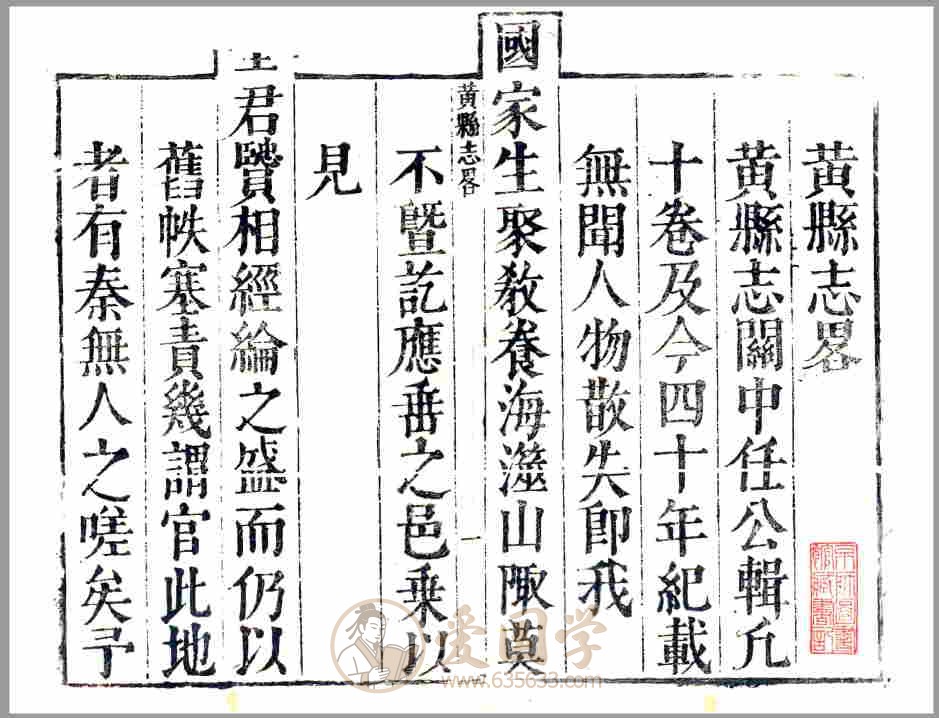 黄縣志畧
黄縣志關中任公輯凡
十卷及今四十年紀載
無聞人物散失卽我
國家生聚教養海澨山陬莫
黄縣志畧 一
不暨訖應垂之邑乗以
見
君賢相經綸之盛而仍以
舊帙塞責幾謂官此地
者有秦無人之嗟矣予
爱国学
www.635633.com